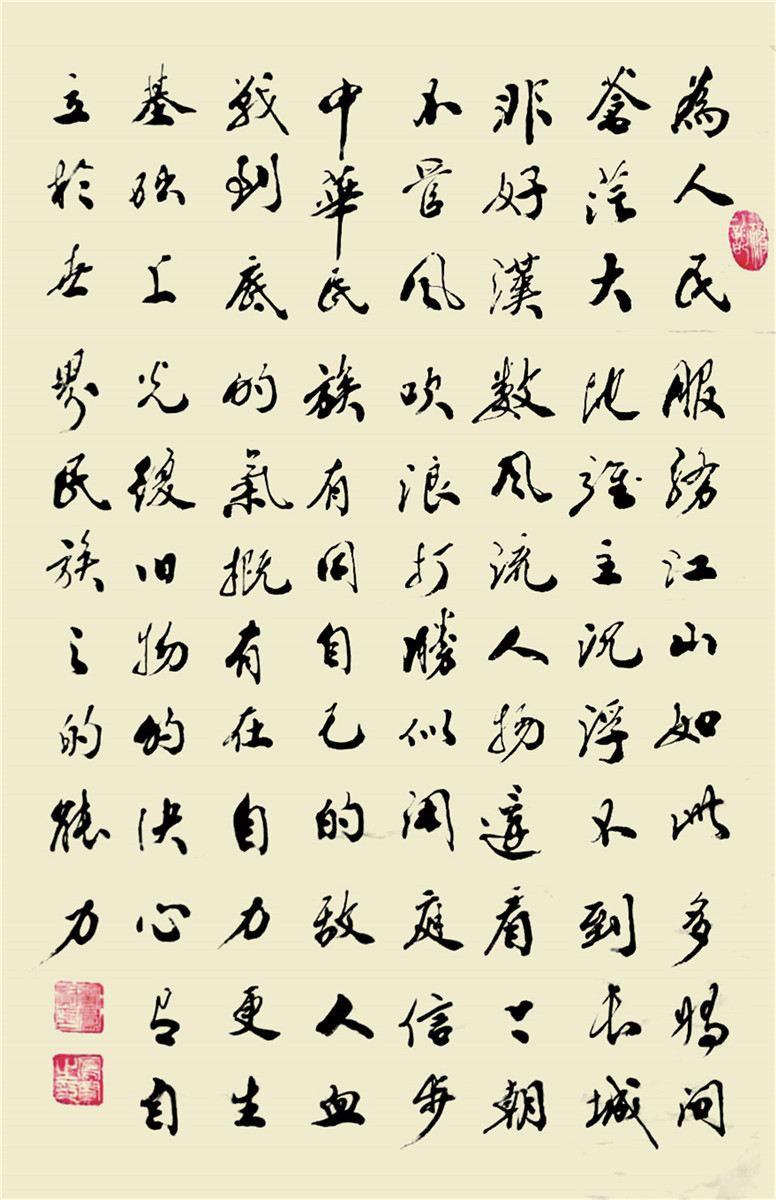 為人民服務江山如此多嬌問
蒼茫大地誰主沉浮不到長城
非好漢數風流人物還看今朝
不管風吹浪打勝似閑庭信步
中華民族有同自己的敵人血
戰到底的氣概有在自力更生
基础上光復旧物的決心有自
立於世界民族之的能力